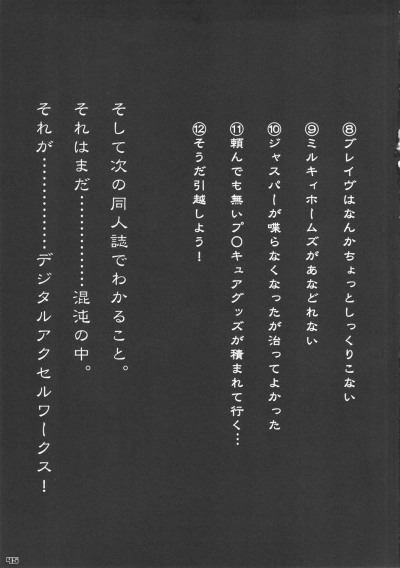 ⑧ブレイヴはなんかちょっとしっくりこない
⑨ミルキィホームズがあなどれない
⑩ジャスパーが喋らなくなったが治ってよかった
⑪頼んでも無いプ〇キュアグッズが積まれて行く…
⑫そうだ引越しよう！
そして次の同人誌でわかること。
それはまだ……………混沌の中。
それが……………デジタルアクセルワークス！
45